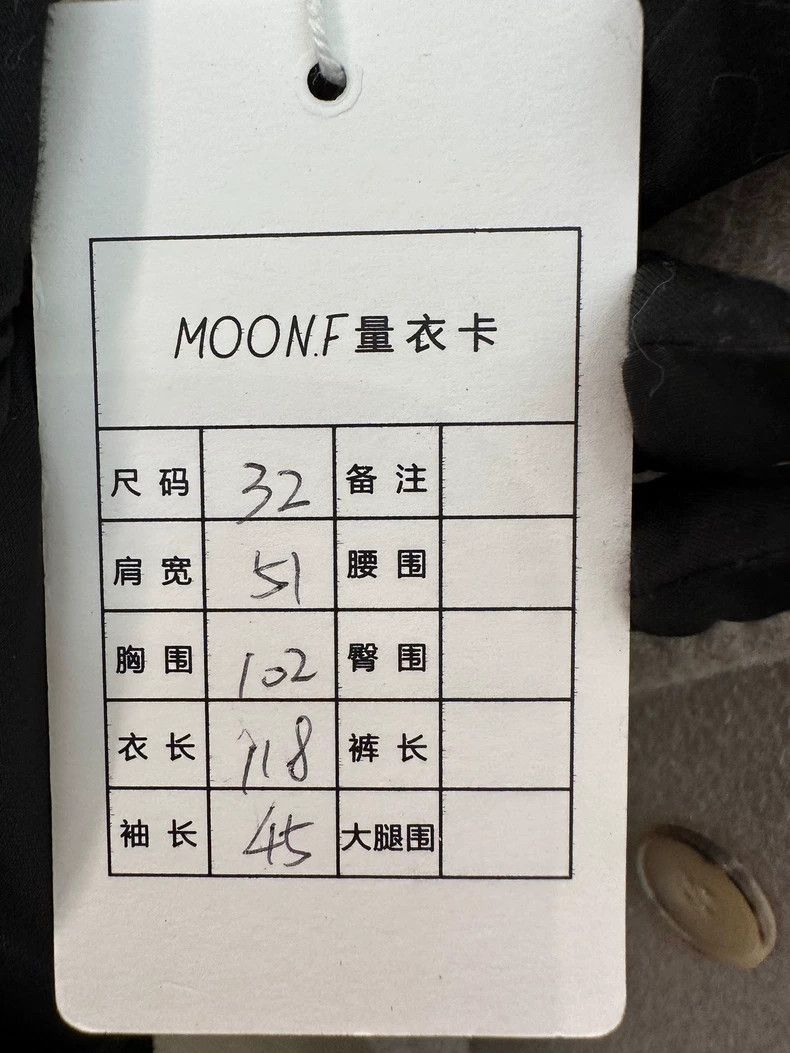 MOON.F量衣卡
尺码 32 备注
肩宽 51 腰围
胸围 102 臀围
衣长 118 裤长
袖长 45 大腿围